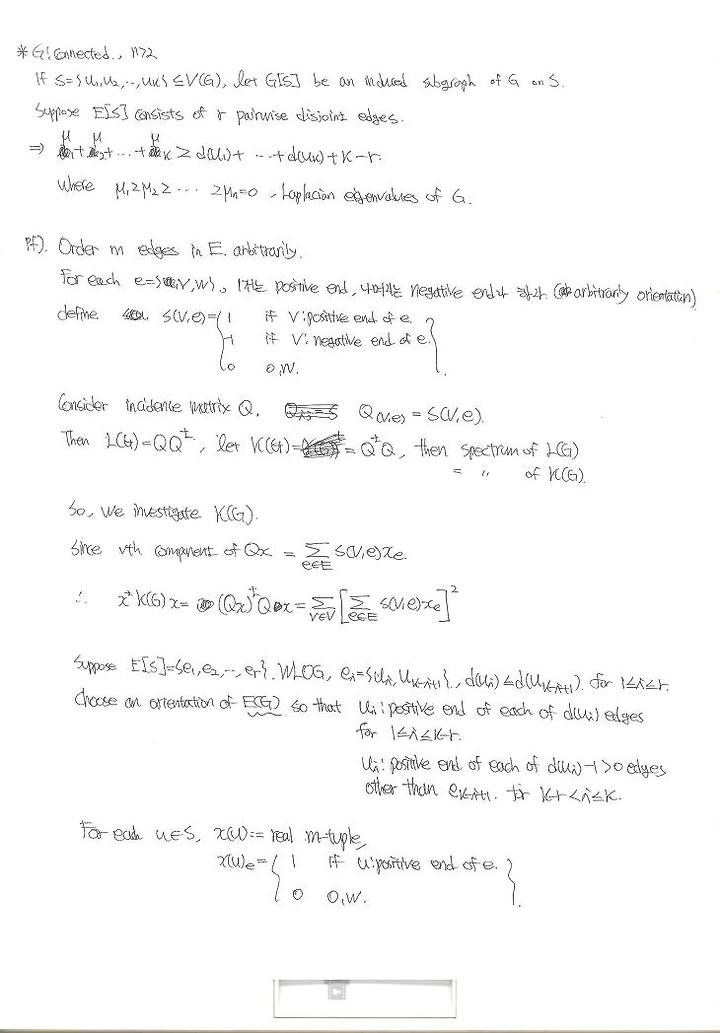 * G: Connected., n>2
If S={u1,u2,...,uk} ≤ V(G), let G[S] be an induced subgraph of G on S.
Suppose E[S] consists of r pairwise disjoint edges.
⇒ μ1+μ2+...+μk ≥ d(u1)+...+d(uk)+k-r.
Where μ1≥μ2≥... ≥μn=0, Laplacian eigenvalues of G.
Pf). Order m edges in E. arbitrarily.
For each e={v,w}, 1개는 positive end, 나머지는 negative end라 하자. (arbitrarily orientation)
define s(v,e)={ 1 if v:positive end of e.
-1 if v: negative end of e.
0 o,w. }.
Consider incidence matrix Q. Q(v,e) = s(v,e).
Then L(G)=QQ^t, let K(G)=Q^tQ, then spectrum of L(G)
= " of K(G).
So, we investigate K(G).
Since vth component of Qx = Σ_{e∈E} s(v,e)x_e.
∴ x^tK(G)x= (Qx)^tQx= Σ_{v∈V} [Σ_{e∈E} s(v,e)x_e]^2
Suppose E[S]={e1,e2,...,er}. WLOG, ei={ui,uk-i+1}, d(ui)≤d(uk-i+1). for 1≤i≤r.
Choose an orientation of E(G) so that ui: positive end of each of d(ui) edges
for 1≤i≤k-r.
ui: positive end of each of d(ui)-1>0 edges
other than ek-i+1. for k-r<i≤k.
For each u∈S, x(u):= real m-tuple,
x(u)e={ 1 if u:positive end of e.
0 o,w. }.